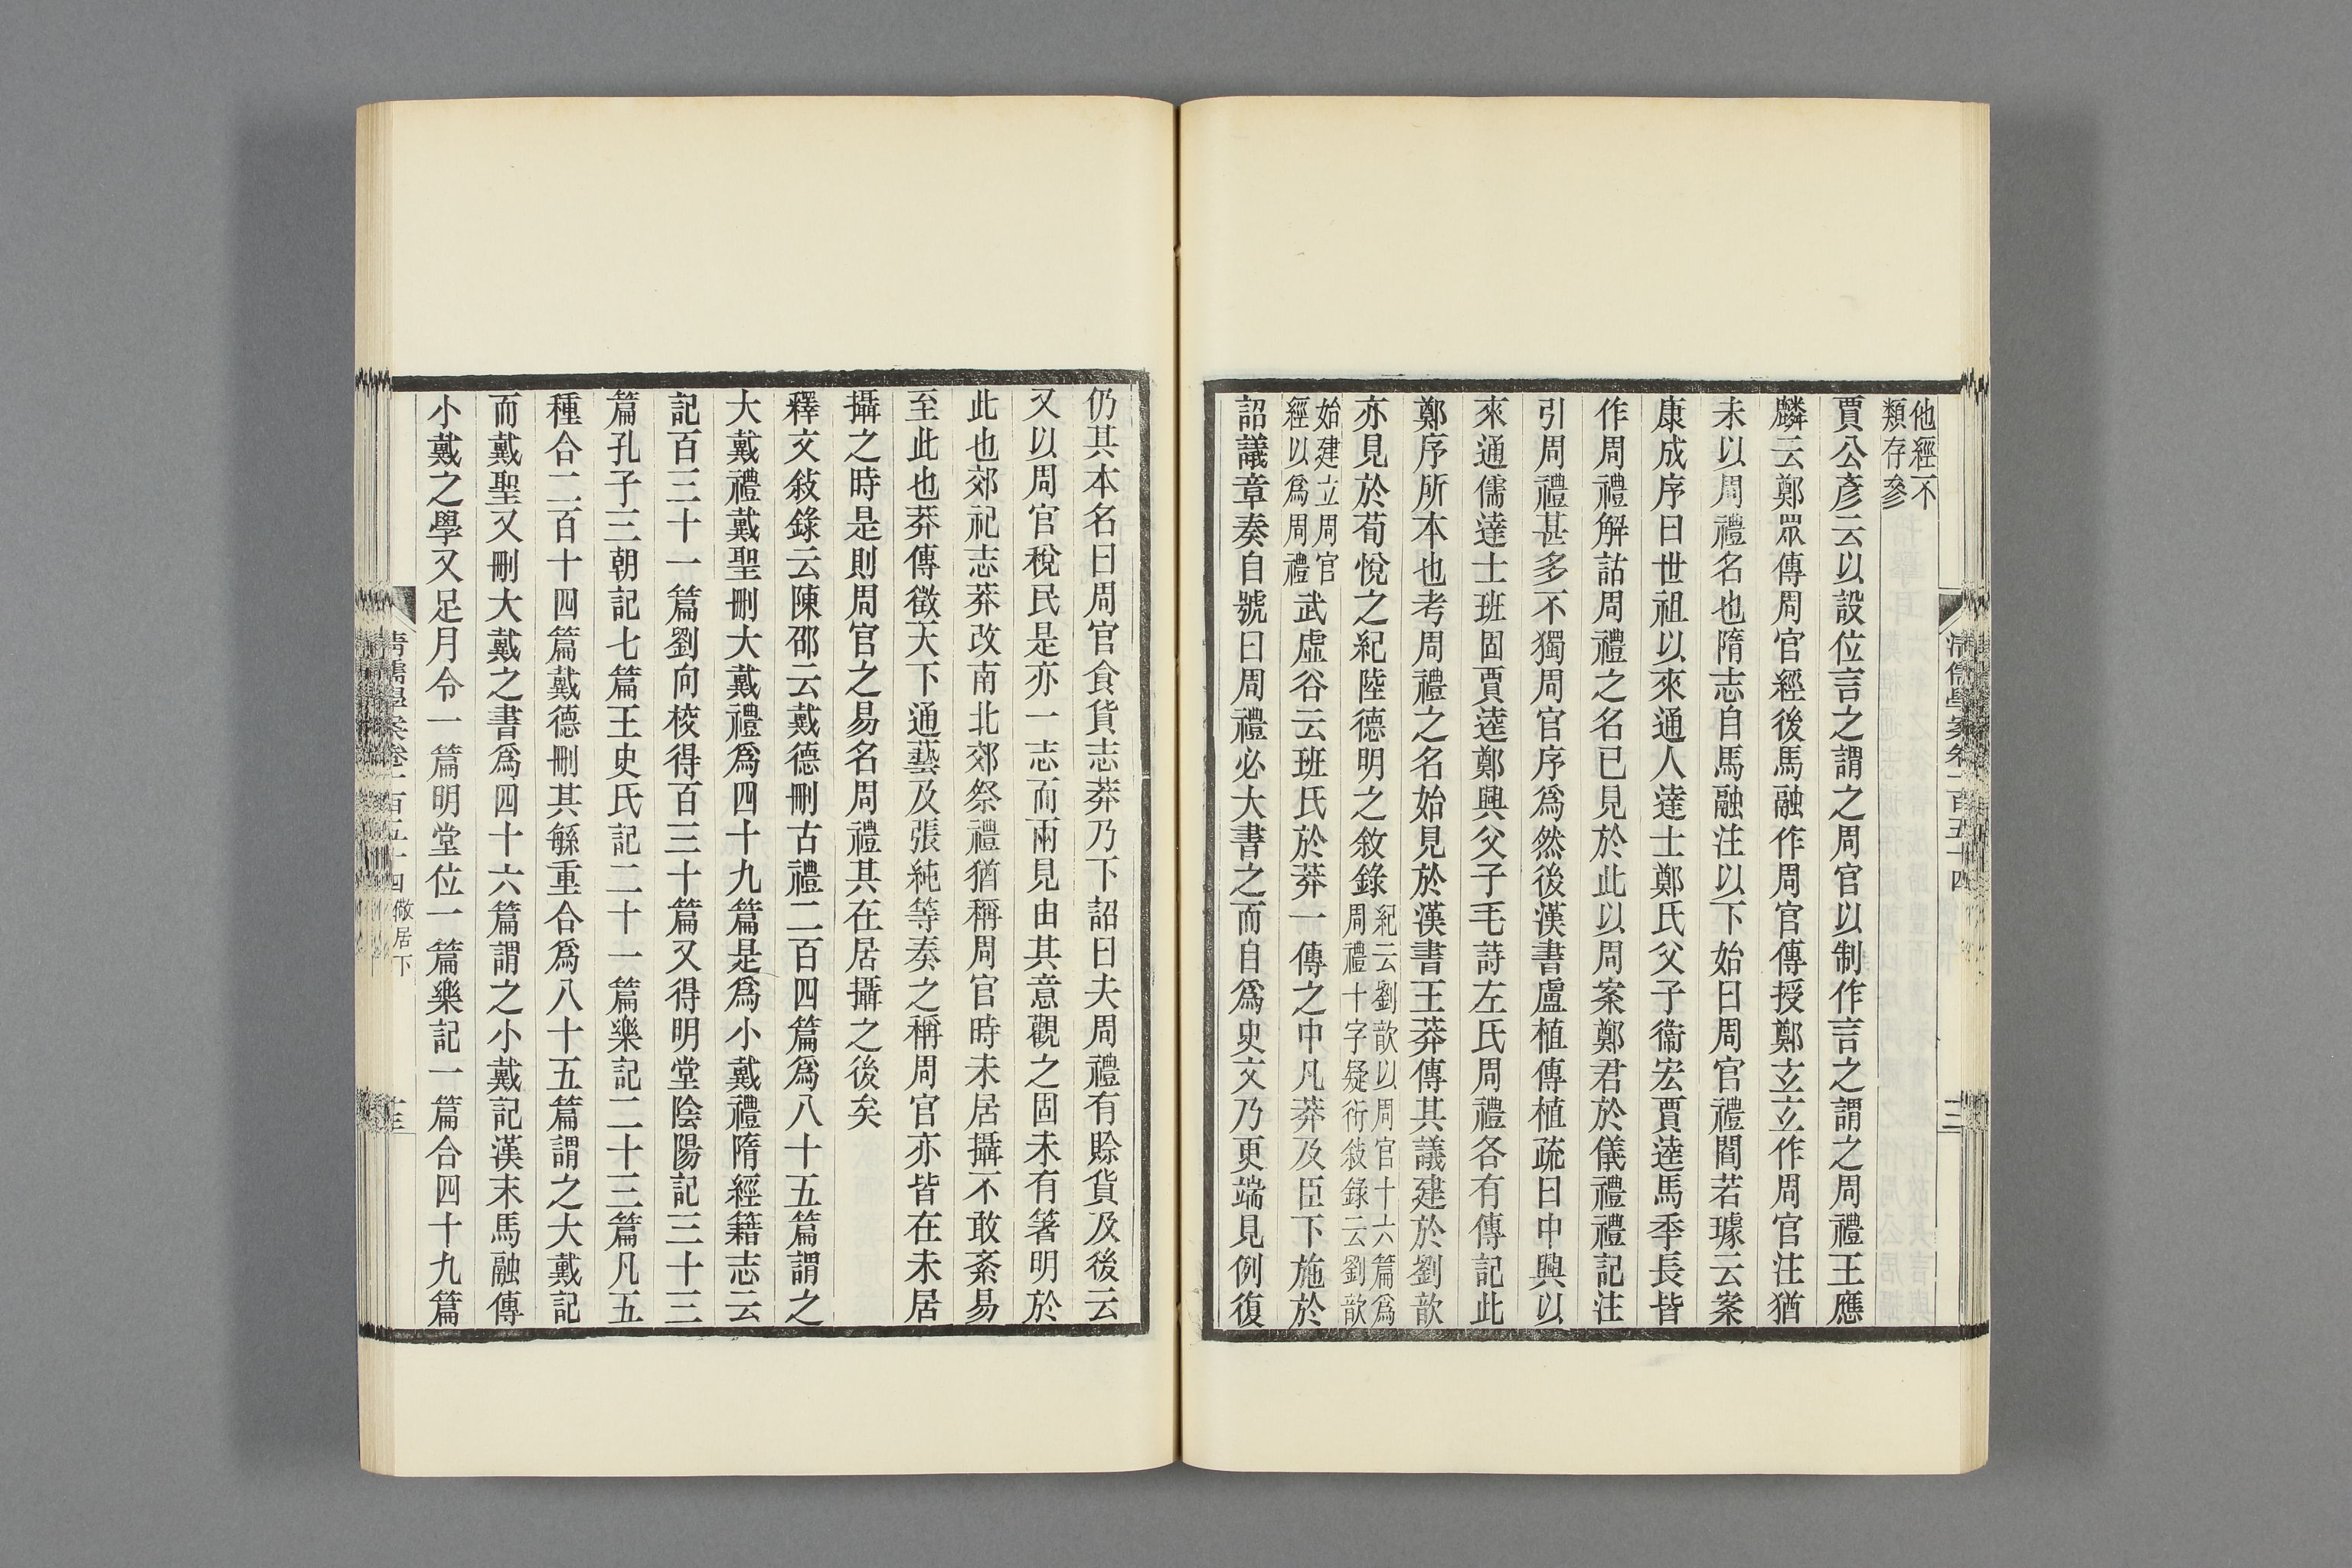 他經不
類存參
賈公彥云以設位言之謂之周官以制作言之謂之周禮王應
麟云鄭眾傳周官經後馬融作周官傳授鄭玄玄作周官注猶
未以周禮名也隋志自馬融注以下始曰周官禮閻若璩云案
康成序曰世祖以來通人達士鄭氏父子衞宏賈逵馬季長皆
作周禮解詁周禮之名已見於此以周案鄭君於儀禮禮記注
引周禮甚多不獨周官序爲然後漢書盧植傳植疏曰中興以
來通儒達士班固賈逵鄭興父子毛詩左氏周禮各有傳記此
鄭序所本也考周禮之名始見於漢書王莽傳其議建於劉歆
亦見於荀悅之紀陸德明之敘錄
紀云劉歆以周官十六篇爲
周禮十字疑衍敘錄云劉歆
始建立周官
經以爲周禮
武虛谷云班氏於莽一傳之中凡莽及臣下施於
詔議章奏自號曰周禮必大書之而自爲史文乃更端見例復
清儒學案卷一百五十四
三
仍其本名曰周官食貨志莽乃下詔曰夫周禮有賒貨及後云
又以周官稅民是亦一志而兩見由其意觀之固未有箸明於
此也郊祀志莽改南北郊祭禮猶稱周官時未居攝不敢紊易
至此也莽傳徵天下通藝及張純等奏之稱周官亦皆在未居
攝之時是則周官之易名周禮其在居攝之後矣
釋文敍錄云陳邵云戴德刪古禮二百四篇爲八十五篇謂之
大戴禮戴聖刪大戴禮爲四十九篇是爲小戴禮隋經籍志云
記百三十一篇劉向校得百三十篇又得明堂陰陽記三十三
篇孔子三朝記七篇王史氏記二十一篇樂記二十三篇凡五
種合二百十四篇戴德刪其緐重合爲八十五篇謂之大戴記
而戴聖又刪大戴之書爲四十六篇謂之小戴記漢末馬融傳
小戴之學又足月令一篇明堂位一篇樂記一篇合四十九篇
清儒學案卷一百五十四 儆居下